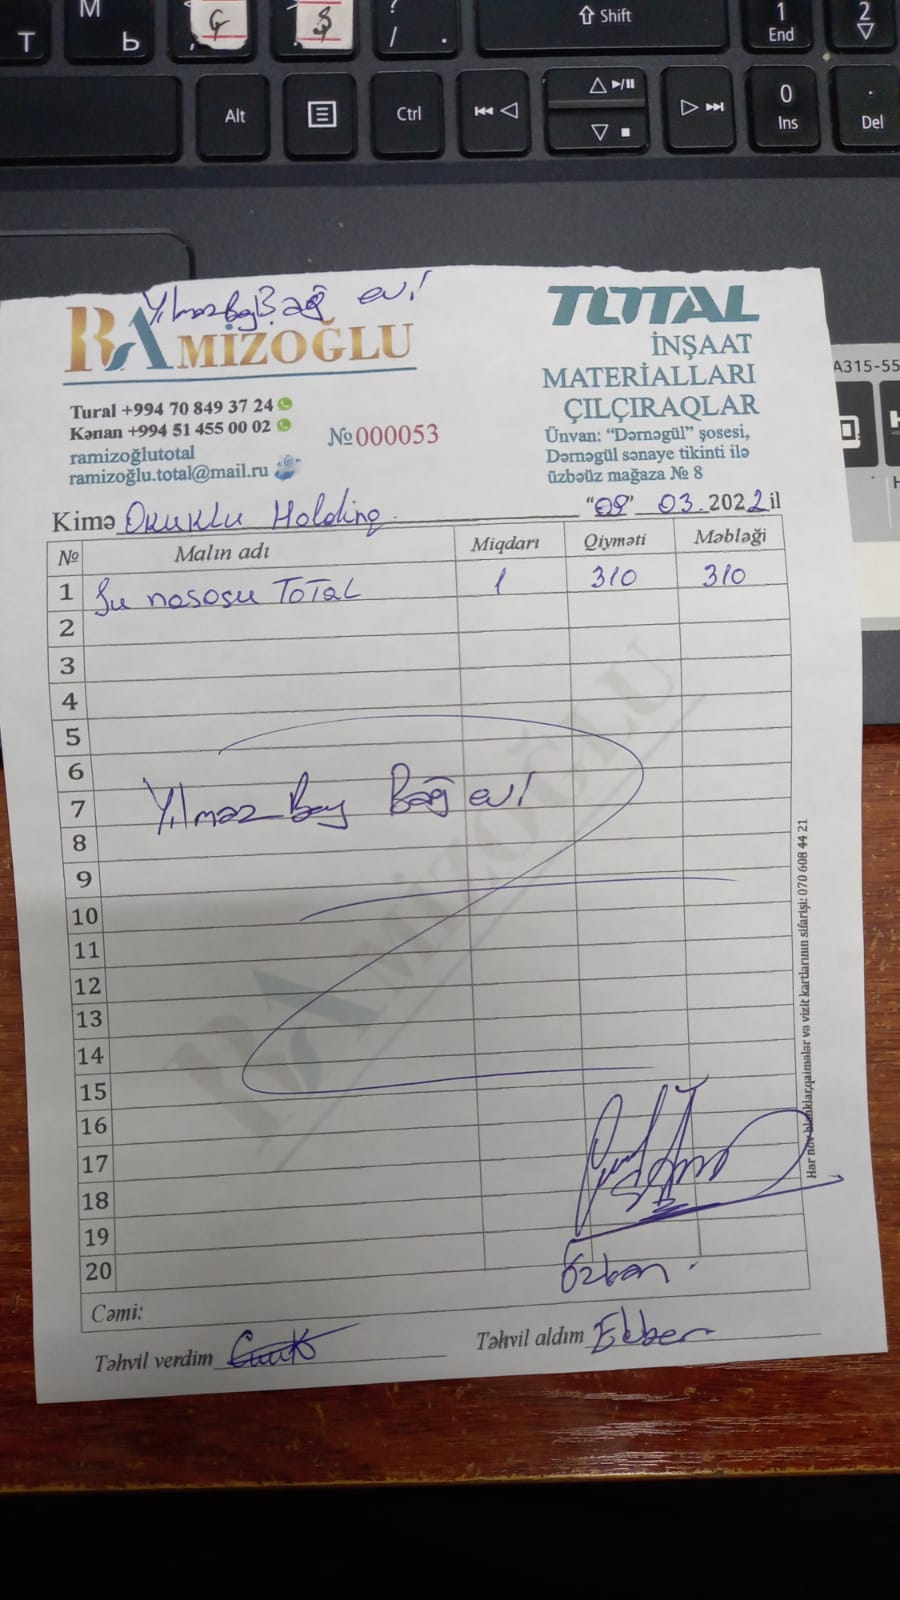 T
M
Ь
Ç
Ş
?
/ .
⇧ Shift
1
End
2
Alt
Ctrl
0
Ins
.
Del
A315-55
Yılmaz Bey Bağ evi
RAMİZOĞLU
TOTAL
İNŞAAT
MATERİALLARI
ÇILÇIRAQLAR
Ünvan: “Dərnəgül” şosesi,
Dərnəgül sənaye tikinti ilə
üzbəüz mağaza № 8
Tural +994 70 849 37 24
Kənan +994 51 455 00 02
ramizoğlutotal
ramizoğlu.total@mail.ru
№000053
Kimə Okuklu Holding
“09” 03.2022il
№ Malın adı Miqdarı Qiyməti Məbləği
1 Su nasosu TOTAL 1 310 310
2
3
4
5
6
7 Yılmaz Bey Bağ evi
8
9
10
11
12
13
14
15
16
17
18
19
20
Özkan
Cəmi:
Təhvil verdim
Təhvil aldım Ekber
RAMİZOĞLU
Hər növ blanklar,qaimələr və vizit kartlarının sifarişi: 070 608 44 21